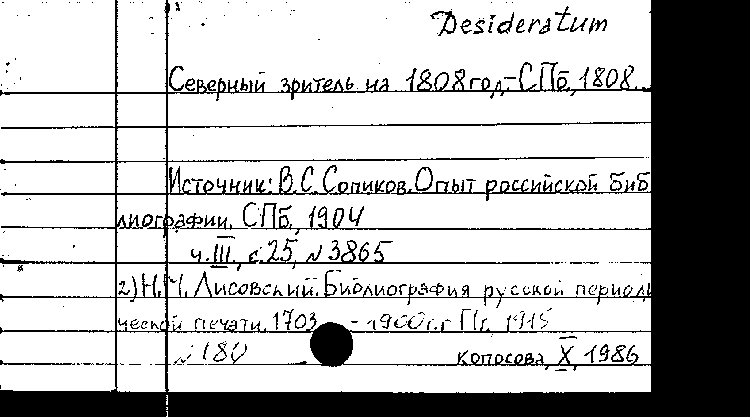 Desideratum
Северный зритель на 1808 год.-СПб., 1808.
Источник: В.С. Сопиков. Опыт российской биб
лиографии. СПб., 1904
ч. III, с. 25, N 3865
2) Н.М. Лисовский. Библиография русской периоди
ческой печати. 1703 - 1900 г.г. Пг. 1915
N 180
Копосова, X, 1986